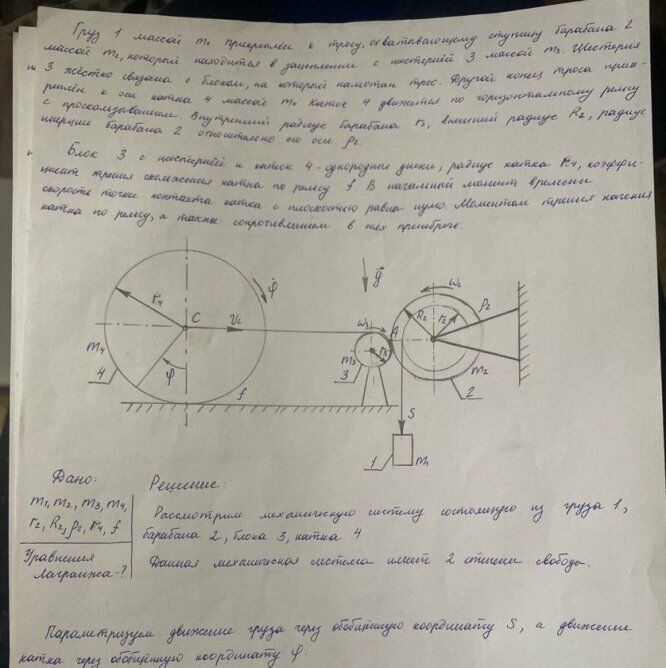 Груз 1 массой m₁ прикреплён к тросу, охватывающему ступицу барабана 2
массой m₂, который находится в зацеплении с шестернёй 3 массой m₃. Шестерня
3 жёстко связана с блоком, на который намотан трос. Другой конец троса прик-
реплён к оси катка 4 массой m₄. Каток 4 движется по горизонтальному рельсу
с проскальзыванием. Внутренний радиус барабана r₂, внешний радиус R₂, радиус
инерции барабана 2 относительно его оси ρ₂.
Блок 3 с шестернёй и каток 4 - однородные диски, радиус катка r₄, коэффи-
циент трения скольжения катка по рельсу f. В начальный момент времени
скорость точки контакта катка с плоскостью равна нулю. Моментом трения качения
катка по рельсу, а также сопротивлением в осях пренебречь.
r₄
C
V_C
φ̇
m₄
4
φ
f
g⃗
ω₃
A
m₃
r₃
3
ω₂
R₂
r₂
ρ₂
m₂
2
S
1
m₁
Дано:
m₁, m₂, m₃, m₄,
r₂, R₂, ρ₂, r₄, f
Уравнения
Лагранжа - ?
Решение:
Рассмотрим механическую систему состоящую из груза 1,
барабана 2, блока 3, катка 4
Данная механическая система имеет 2 степени свободы.
Параметризуем движение груза через обобщённую координату S, а движение
катка через обобщённую координату φ.